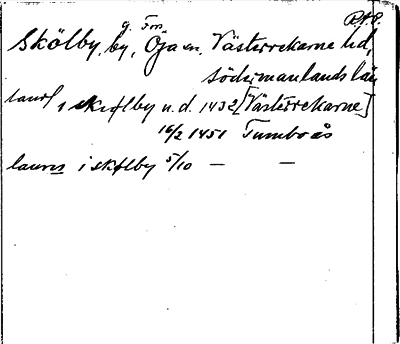 g. Fors R.A.P.
Skölby, by, Öja sn, Västerrekarne hd,
Södermanlands län
laur i skiølby u.d. 1432 [Västerrekarne]
16/2 1451 Tumboås
laurens i skølby 5/10 — —